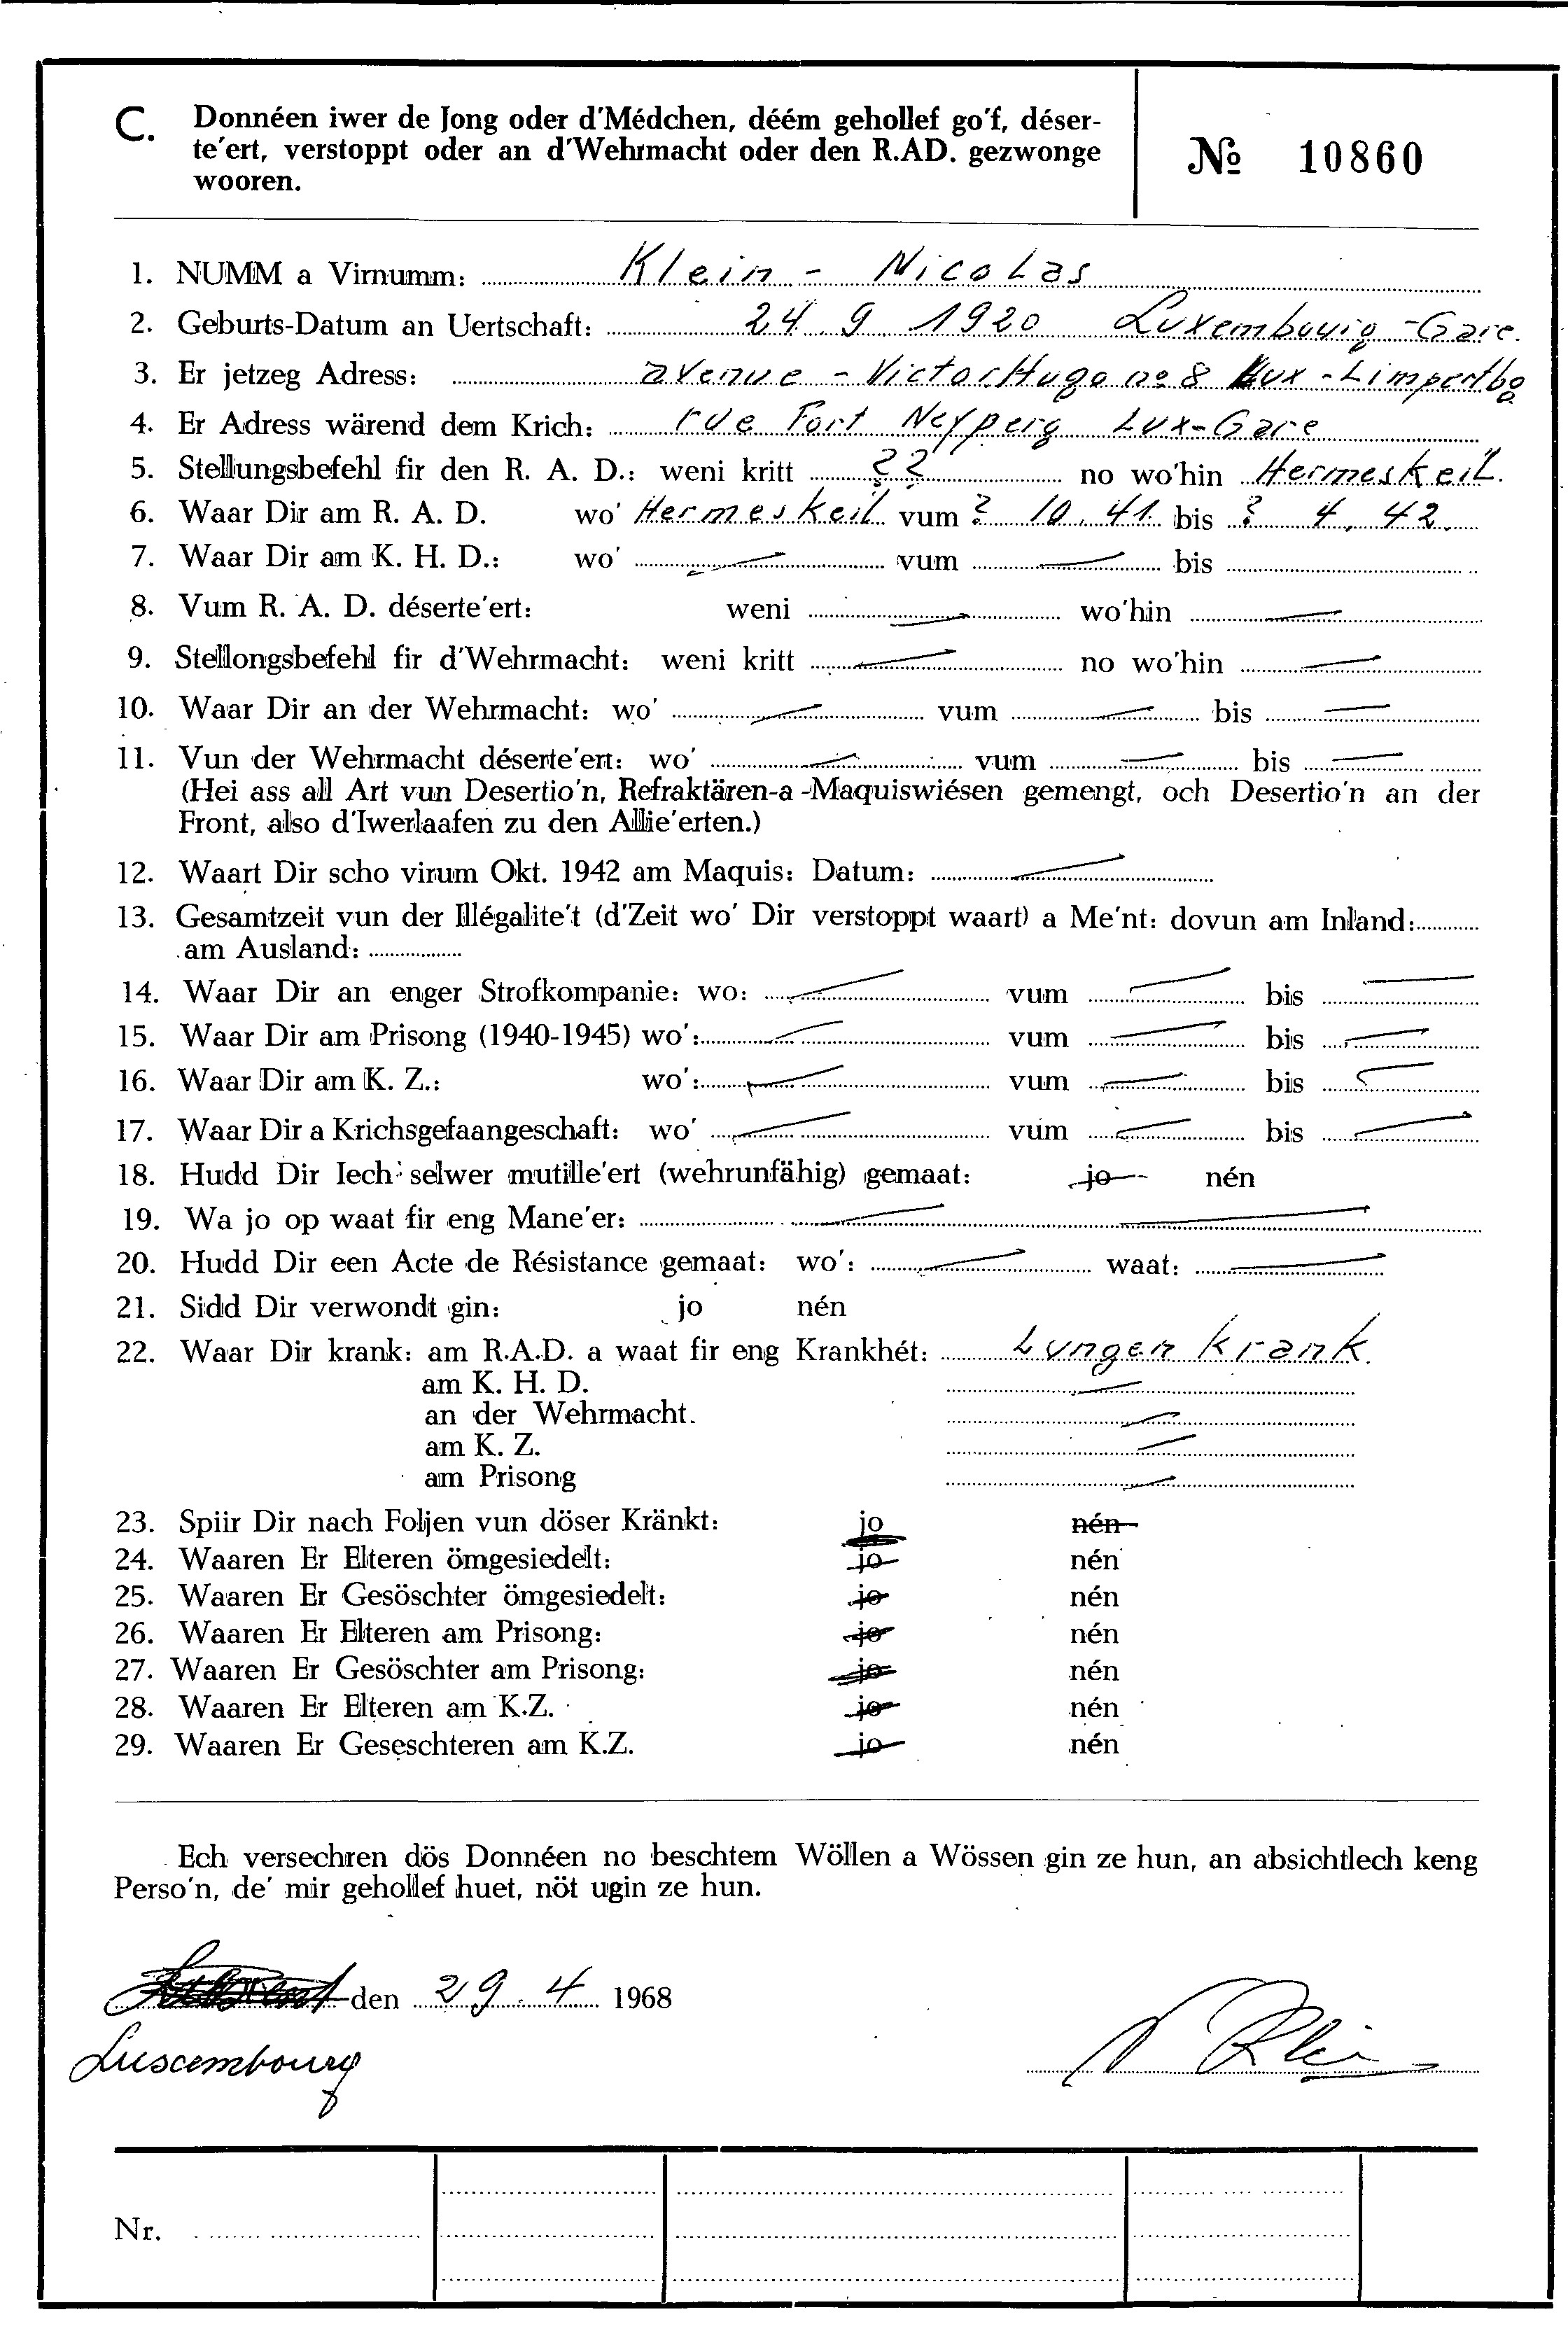 C. Donnéen iwer de Jong oder d'Médchen, déém gehollef go'f, déser-
te'ert, verstoppt oder an d'Wehrmacht oder den R.AD. gezwonge
wooren.
№ 10860
1. NUMM a Virnumm: Klein - Nicolas
2. Geburts-Datum an Uertschaft: 24. 9 1920 Luxembourg-Gare.
3. Er jetzeg Adress: avenue - Victor Hugo no 8 Lux-Limpertbg
4. Er Adress wärend dem Krich: rue Fort Neyperg Lux-Gare
5. Stellungsbefehl fir den R. A. D.: weni kritt ?? no wo'hin Hermeskeil.
6. Waar Dir am R. A. D. wo' Hermeskeil vum ? 10. 41. bis ? 4. 42.
7. Waar Dir am K. H. D.: wo' — vum — bis
8. Vum R. A. D. déserte'ert: weni — wo'hin —
9. Stellongsbefehl fir d'Wehrmacht: weni kritt — no wo'hin —
10. Waar Dir an der Wehrmacht: wo' — vum — bis —
11. Vun der Wehrmacht déserte'ert: wo' — vum — bis —
(Hei ass all Art vun Desertio'n, Refraktären-a-Maquiswiésen gemengt, och Desertio'n an der
Front, also d'Iwerlaafen zu den Allie'erten.)
12. Waart Dir scho virum Okt. 1942 am Maquis: Datum: —
13. Gesamtzeit vun der Illégalite't (d'Zeit wo' Dir verstoppt waart) a Me'nt: dovun am Inland:
am Ausland:
14. Waar Dir an enger Strofkompanie: wo: — vum — bis —
15. Waar Dir am Prisong (1940-1945) wo': — vum — bis —
16. Waar Dir am K. Z.: wo': — vum — bis —
17. Waar Dir a Krichsgefaangeschaft: wo' — vum — bis —
18. Hudd Dir Iech selwer mutille'ert (wehrunfähig) gemaat: jo nén
19. Wa jo op waat fir eng Mane'er: — —
20. Hudd Dir een Acte de Résistance gemaat: wo': — waat: —
21. Sidd Dir verwondt gin: jo nén
22. Waar Dir krank: am R.A.D. a waat fir eng Krankhét: Lungenkrank.
am K. H. D. —
an der Wehrmacht. —
am K. Z. —
am Prisong —
23. Spiir Dir nach Foljen vun döser Kränkt: jo nén
24. Waaren Er Elteren ömgesiedelt: jo nén
25. Waaren Er Gesöschter ömgesiedelt: jo nén
26. Waaren Er Elteren am Prisong: jo nén
27. Waaren Er Gesöschter am Prisong: jo nén
28. Waaren Er Elteren am K.Z. jo nén
29. Waaren Er Geseschteren am K.Z. jo nén
Ech versechren dös Donnéen no beschtem Wöllen a Wössen gin ze hun, an absichtlech keng
Perso'n, de' mir gehollef huet, nöt ugin ze hun.
den 29. 4 1968
Luxembourg
N Klein
Nr.